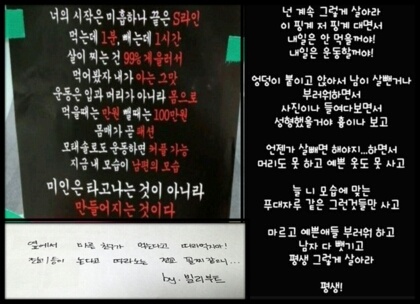 너의 시작은 미흡하나 끝은 S라인
먹는데 1분, 빼는데 1시간
살이 찌는 것 99% 게을러서
먹어봤자 내가 아는 그맛
운동은 입과 머리가 아니라 몸으로
먹을때는 만원 뺄때는 100만원
몸매가 곧 패션
모태솔로도 운동하면 커플 가능
지금 내 모습이 남편의 모습
미인은 타고나는 것이 아니라
만들어지는 것이다
옆에서 마른 친구가 먹는다고 따라먹지마!
논다고 따라노는
by. 빌리부트
넌 계속 그렇게 살아라
이 핑계 저 핑계 대면서
내일은 안 먹을꺼야!
내일은 운동할꺼야!
엉덩이 붙이고 앉아서 남이 살뺀거나
부러워하면서
사진이나 들여다보면서
성형했을거야 흉이나 보고
언젠가 살빼면 해야지...하면서
머리도 못 하고 예쁜 옷도 못 사고
늘 니 모습에 맞는
푸대자루 같은 그런것들만 사고
마르고 예쁜애들 부러워 하고
남자 다 뺏기고
평생 그렇게 살아라
평생!